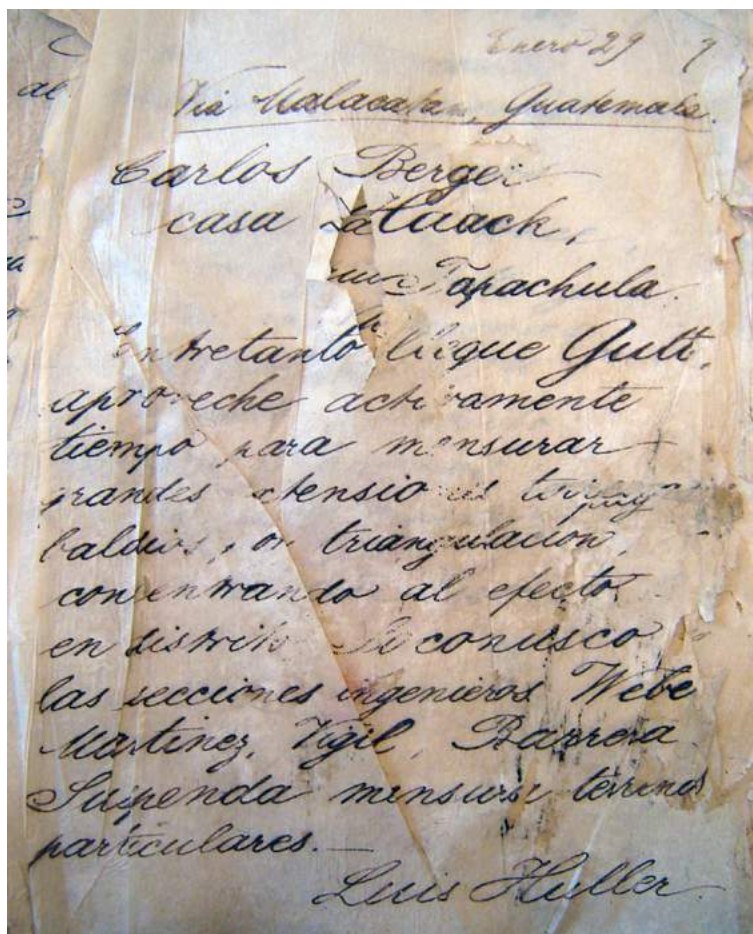 Enero 29
al
Via Malacatan, Guatemala.
Carlos Berger
casa Laack,
Tapachula.
Entretanto llegue Gutt,
aproveche activamente
tiempo para mensurar
grandes extensiones
baldios, por triangulacion,
consentrando al efecto
en distrito Soconusco
las secciones ingenieros Webe
Martinez, Vigil, Barrera
Suspenda mensura terrenos
particulares.—
Luis Huller